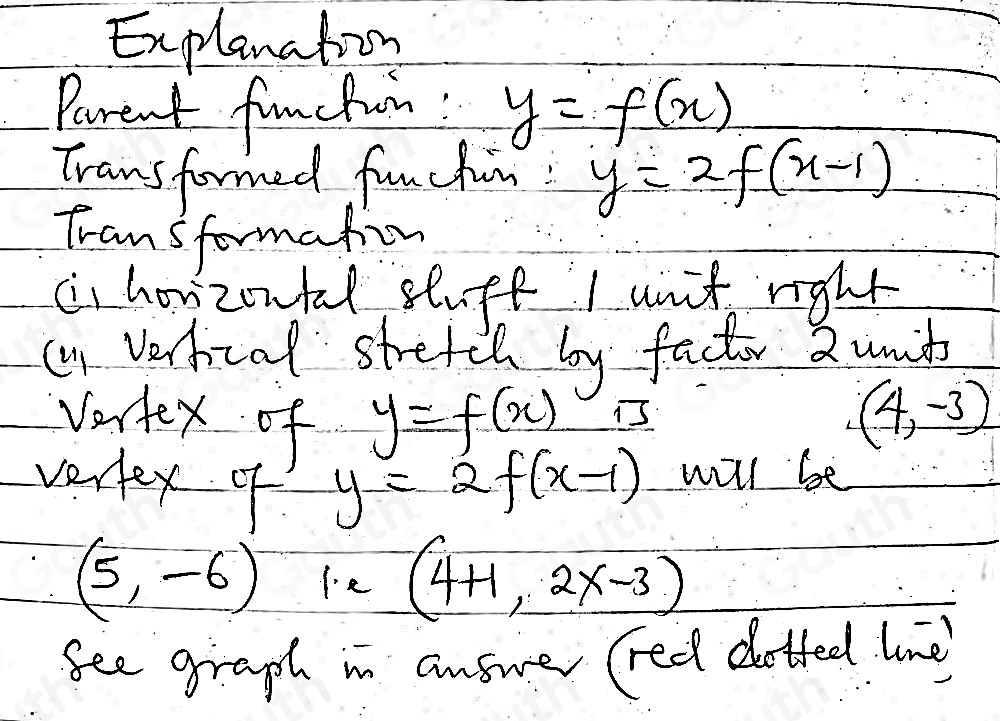 Explanation
Parent function: y = f(x)
Transformed function: y = 2f(x-1)
Transformation
(i) horizontal shift 1 unit right
(ii) Vertical stretch by factor 2 units
Vertex of y = f(x) is (4, -3)
vertex of y = 2f(x-1) will be
(5, -6) i.e (4+1, 2x-3)
See graph in answer (red dotted line)